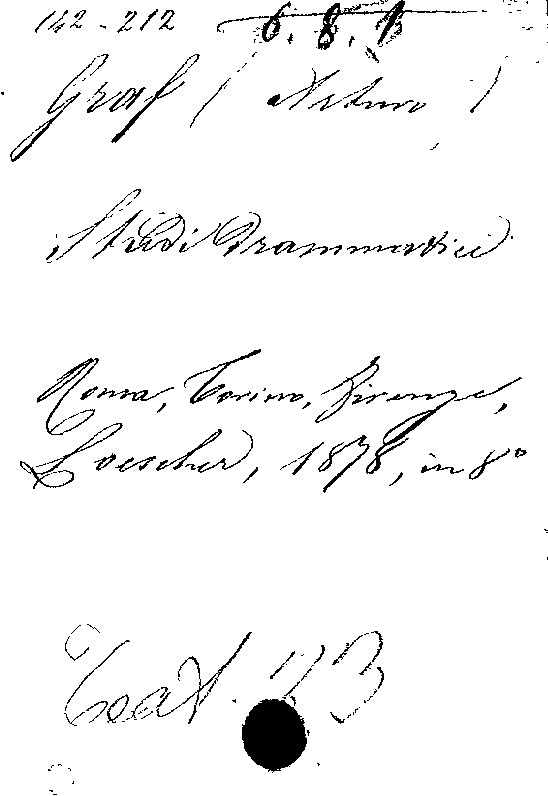 142-212 6.8.B
Graf (Arturo)
Studi Drammatici
Roma, Torino, Firenze,
Loescher, 1878, in 8°
Teat. 23